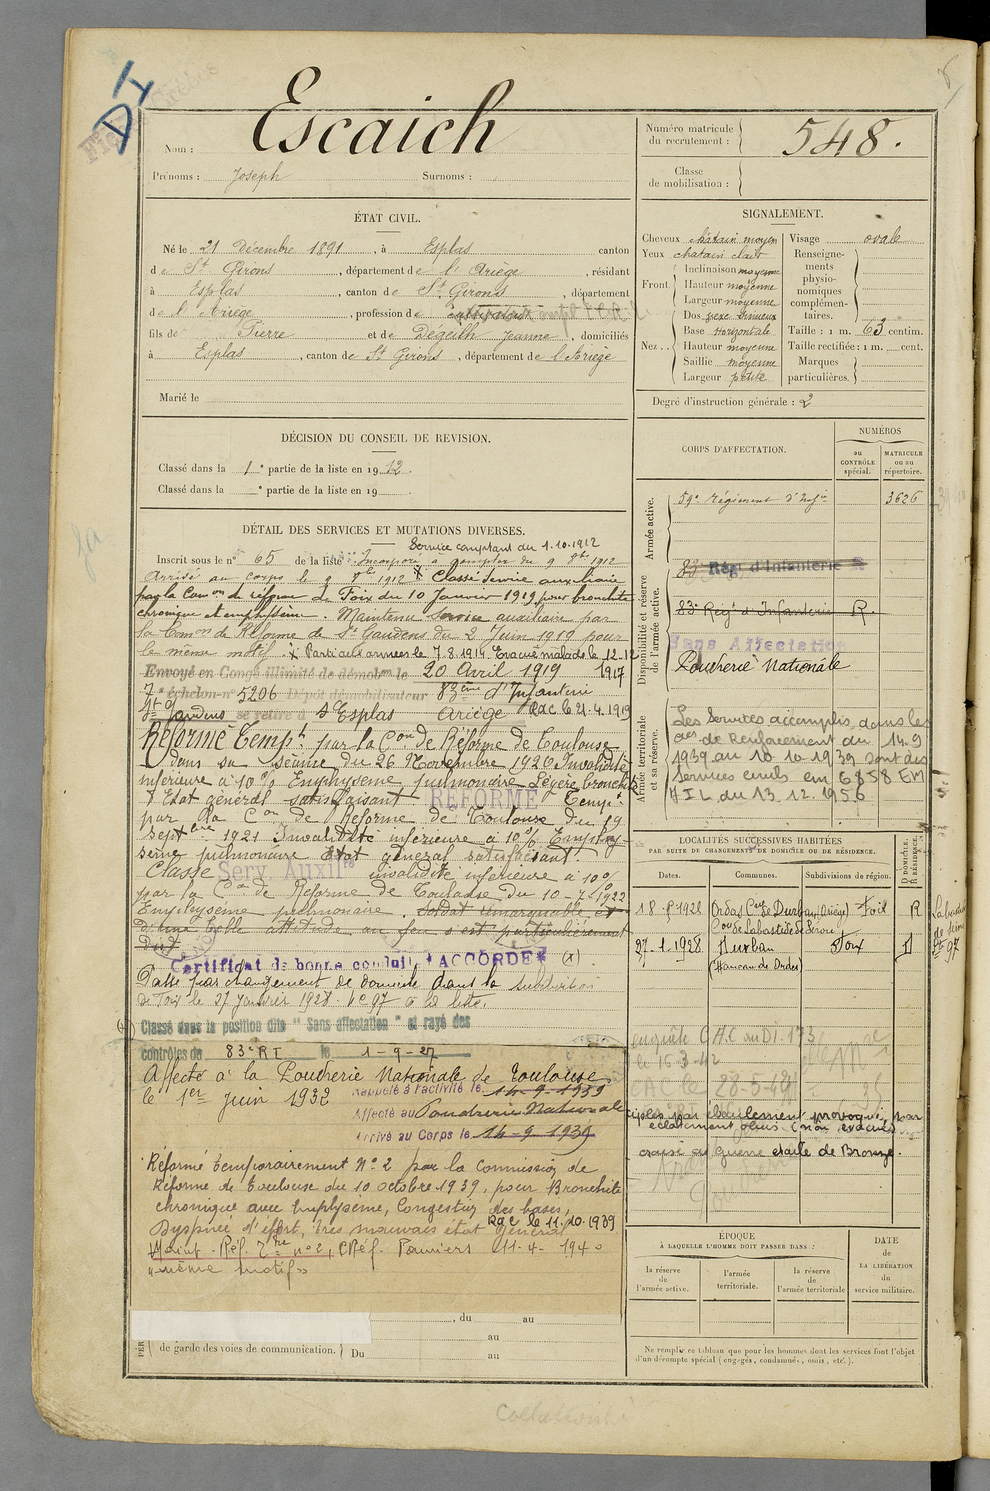 D I
Nom : Escaich
Prénoms : Joseph Surnoms :
Numéro matricule du recrutement : 548.
Classe de mobilisation :
ÉTAT CIVIL.
Né le 21 Décembre 1891, à Esplas canton
de St Girons, département de l'Ariège, résidant
à Esplas, canton de St Girons, département
de l'Ariège, profession de cultivateur
fils de Pierre et de Dégeilh Jeanne, domiciliés
à Esplas, canton de St Girons, département de l'Ariège
Marié le
SIGNALEMENT.
Cheveux châtain moyen
Yeux chatain clair
Front. Inclinaison moyenne
Hauteur moyenne
Largeur moyenne
Nez.. Dos sinueux
Base horizontale
Hauteur moyenne
Saillie moyenne
Largeur petite
Visage ovale
Renseignements physionomiques complémentaires.
Taille : 1 m. 63 centim.
Taille rectifiée : 1 m. cent.
Marques particulières.
Degré d'instruction générale : 2
DÉCISION DU CONSEIL DE REVISION.
Classé dans la 1e partie de la liste en 1912.
Classé dans la e partie de la liste en 19 .
CORPS D'AFFECTATION.
NUMÉROS
au CONTRÔLE spécial.
MATRICULE ou au répertoire.
Armée active.
59e Régiment d'Infie 3626
Disponibilité et réserve de l'armée active.
83e Régt d'Infanterie R
83e Regt d'Infanterie R.
Sans Affectation
Poudrerie Nationale
Armée territoriale et sa réserve.
Les Services accomplis dans les
de Renforcement du 14.9
1939 au 10 10 1939 sont des
Services civils em 6858 EM
du 13.12.1956
DÉTAIL DES SERVICES ET MUTATIONS DIVERSES.
Service comptant du 1.10.1912
Inscrit sous le n° 65 de la liste Incorporé à compter du 9 8bre 1912
Arrivé au corps le 9 8bre 1912 X Classé service auxiliaire
par la Comon de réforme de Foix du 10 Janvier 1919 pour bronchite
chronique et emphysème. Maintenu Service auxiliaire par
la Comon de Réforme de St Gaudens du 2 Juin 1919 pour
le même motif. X Parti aux armées le 7.8.1914. Evacué malade le 12.12
1917
Envoyé en Congé illimité de démobon le 20 Avril 1919
7e échelon n° 5206 Dépôt démobilisateur 83ème d'Infanterie
St Gaudens se retire à Esplas Ariège Rac le 21.4.1919
Réformé Tempt par la Con de Réforme de Toulouse
dans sa séance du 26 Novembre 1920 Invalidité
inférieure à 10% Emphysème pulmonaire Légère bronchite
Etat général satisfaisant REFORMÉ Tempt
par la Con de Réforme de Toulouse du 19
Septbre 1921 Invalidité inférieure à 10% Emphy-
sème pulmonaire état général satisfaisant.
Classé Serv. Auxilre invalidité inférieure à 10%
par la Con de Réforme de Toulouse du 10-7-1922
Emphysème pulmonaire. Soldat remarquable et
d'une belle attitude au feu s'est particulièrement
Certificat de bonne conduite ACCORDÉ (x)
Passé par changement de domicile dans la subdivision
de Foix le 27 Janvier 1928. n° 97 à la liste.
Classé dans la position dite "Sans affectation" et rayé des
contrôles de 83e RI le 1-9-27
Affecté à la Poudrerie Nationale de Toulouse
le 1er Juin 1932
Rappelé à l'activité le 14-9-1939
Affecté au Poudrerie Nationale
Arrivé au Corps le 14-9-1939
Réformé temporairement N° 2 par la Commission de
Réforme de Toulouse du 10 octobre 1939, pour Bronchite
chronique avec Emphysème, Congestion des bases,
Dyspnée d'effort, très mauvais état général Rac le 11.10.1939
Maint. Réf. Tre n° 2, CRéf. Pamiers 11-4-1940
"même motif"
LOCALITÉS SUCCESSIVES HABITÉES
PAR SUITE DE CHANGEMENTS DE DOMICILE OU DE RÉSIDENCE.
Dates. Communes. Subdivisions de région. D DOMICILE. R RÉSIDENCE.
18-8-1928 Ordas Cne de Durban (Ariège) Foix R
Con de Labastide de Sérou
27-1-1928 Durban Foix D
(Hameau de Ordas)
enquête C.H.C. au DI. 173
le 16 3-42
CAC le 28-5-42
éboulement provoqué par
éclatement obus (non évacué)
croix de Guerre étoile de Bronze.
EPOQUE
À LAQUELLE L'HOMME DOIT PASSER DANS :
la réserve de l'armée active.
l'armée territoriale.
la réserve de l'armée territoriale
DATE de LA LIBÉRATION du service militaire.
, du au
au
de garde des voies de communication. Du au
Ne remplir ce tableau que pour les hommes dont les services font l'objet
d'un décompte spécial (engagés, condamnés, omis, etc.).